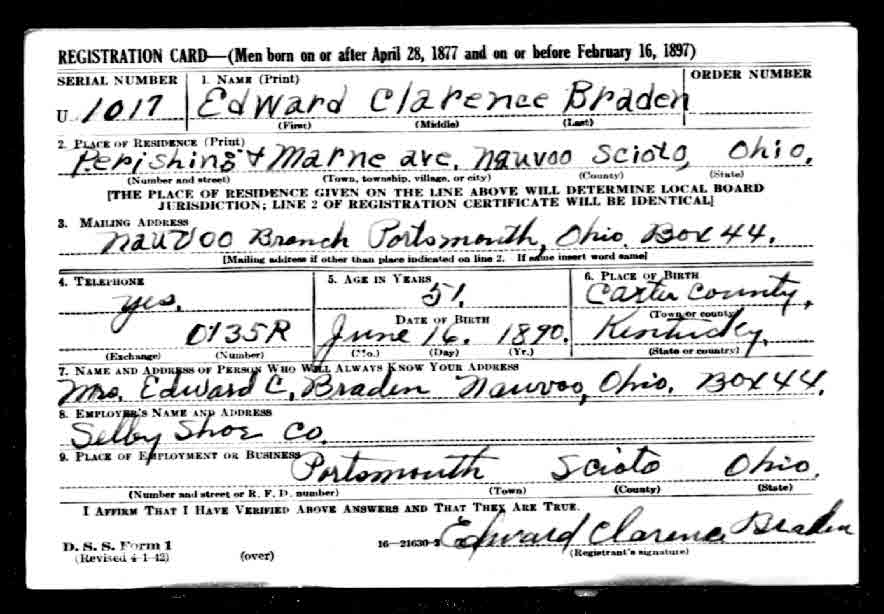 REGISTRATION CARD—(Men born on or after April 28, 1877 and on or before February 16, 1897)
SERIAL NUMBER 1. NAME (Print) ORDER NUMBER
U 1017 Edward Clarence Braden
(First) (Middle) (Last)
2. PLACE OF RESIDENCE (Print)
Perishing & Marne ave. Nauvoo Scioto, Ohio.
(Number and street) (Town, township, village, or city) (County) (State)
[THE PLACE OF RESIDENCE GIVEN ON THE LINE ABOVE WILL DETERMINE LOCAL BOARD
JURISDICTION; LINE 2 OF REGISTRATION CERTIFICATE WILL BE IDENTICAL]
3. MAILING ADDRESS
Nauvoo Branch Portsmouth, Ohio. Box 44.
[Mailing address if other than place indicated on line 2. If same insert word same]
4. TELEPHONE 5. AGE IN YEARS 6. PLACE OF BIRTH
yes. 51. Carter County,
DATE OF BIRTH (Town or county)
0135R June 16. 1890. Kentucky.
(Exchange) (Number) (Mo.) (Day) (Yr.) (State or country)
7. NAME AND ADDRESS OF PERSON WHO WILL ALWAYS KNOW YOUR ADDRESS
Mrs. Edward C. Braden Nauvoo, Ohio. Box 44.
8. EMPLOYER'S NAME AND ADDRESS
Selby Shoe Co.
9. PLACE OF EMPLOYMENT OR BUSINESS
Portsmouth Scioto Ohio.
(Number and street or R. F. D. number) (Town) (County) (State)
I AFFIRM THAT I HAVE VERIFIED ABOVE ANSWERS AND THAT THEY ARE TRUE.
Edward Clarence Braden
D. S. S. Form 1 16—21630-2 (Registrant's signature)
(Revised 4-1-42) (over)